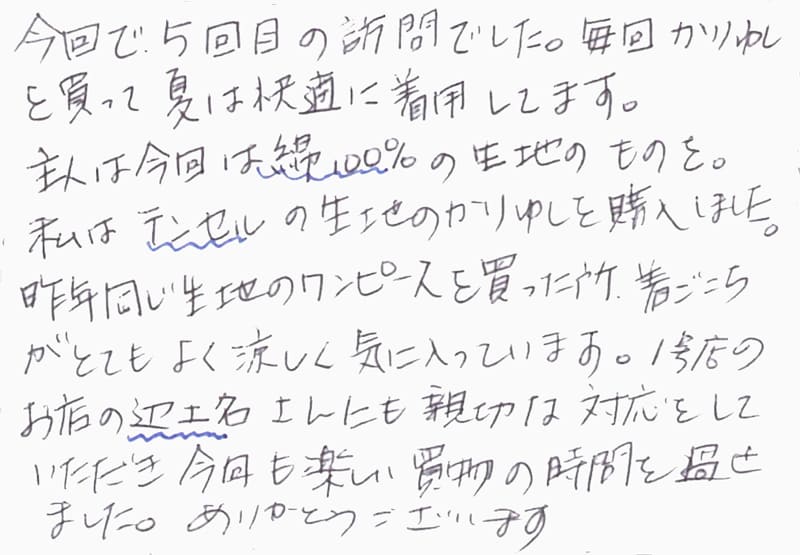 今回で5回目の訪問でした。毎回かりゆし
を買って夏は快適に着用してます。
主人は今回は綿100%の生地のものを。
私はテンセルの生地のかりゆしを購入しました。
昨年同じ生地のワンピースを買った所、着ごこち
がとてもよく涼しく気に入っています。1号店の
お店の辺土名さんにも親切な対応をして
いただき今回も楽しい買物の時間を過せ
ました。ありがとうございます